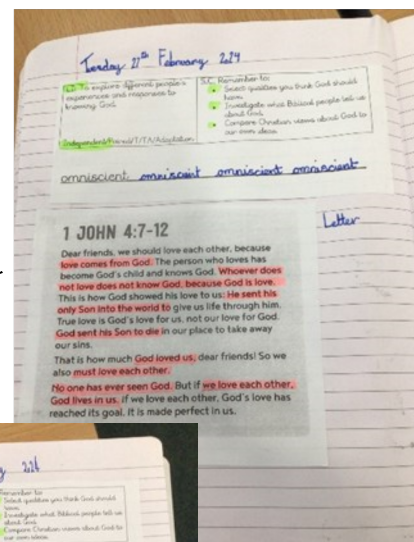 Tuesday 27th February 2024
L.O. To explore different people's
experiences and responses to
knowing God.
Independent/Paired/T/TA/Adaptation
S.C. Remember to:
Select qualities you think God should
have.
Investigate what Biblical people tell us
about God.
Compare Christian views about God to
our own ideas.
omniscient omniscient omniscient omniscient
Letter
1 JOHN 4:7-12
Dear friends, we should love each other, because
love comes from God. The person who loves has
become God's child and knows God. Whoever does
not love does not know God, because God is love.
This is how God showed his love to us: He sent his
only Son into the world to give us life through him.
True love is God's love for us, not our love for God.
God sent his Son to die in our place to take away
our sins.
That is how much God loved us, dear friends! So we
also must love each other.
No one has ever seen God. But if we love each other,
God lives in us. if we love each other, God's love has
reached its goal. It is made perfect in us.
Remember to:
Select qualities you think God should
have.
Investigate what Biblical people tell us
about God.
Compare Christian views about God to
our own ideas.